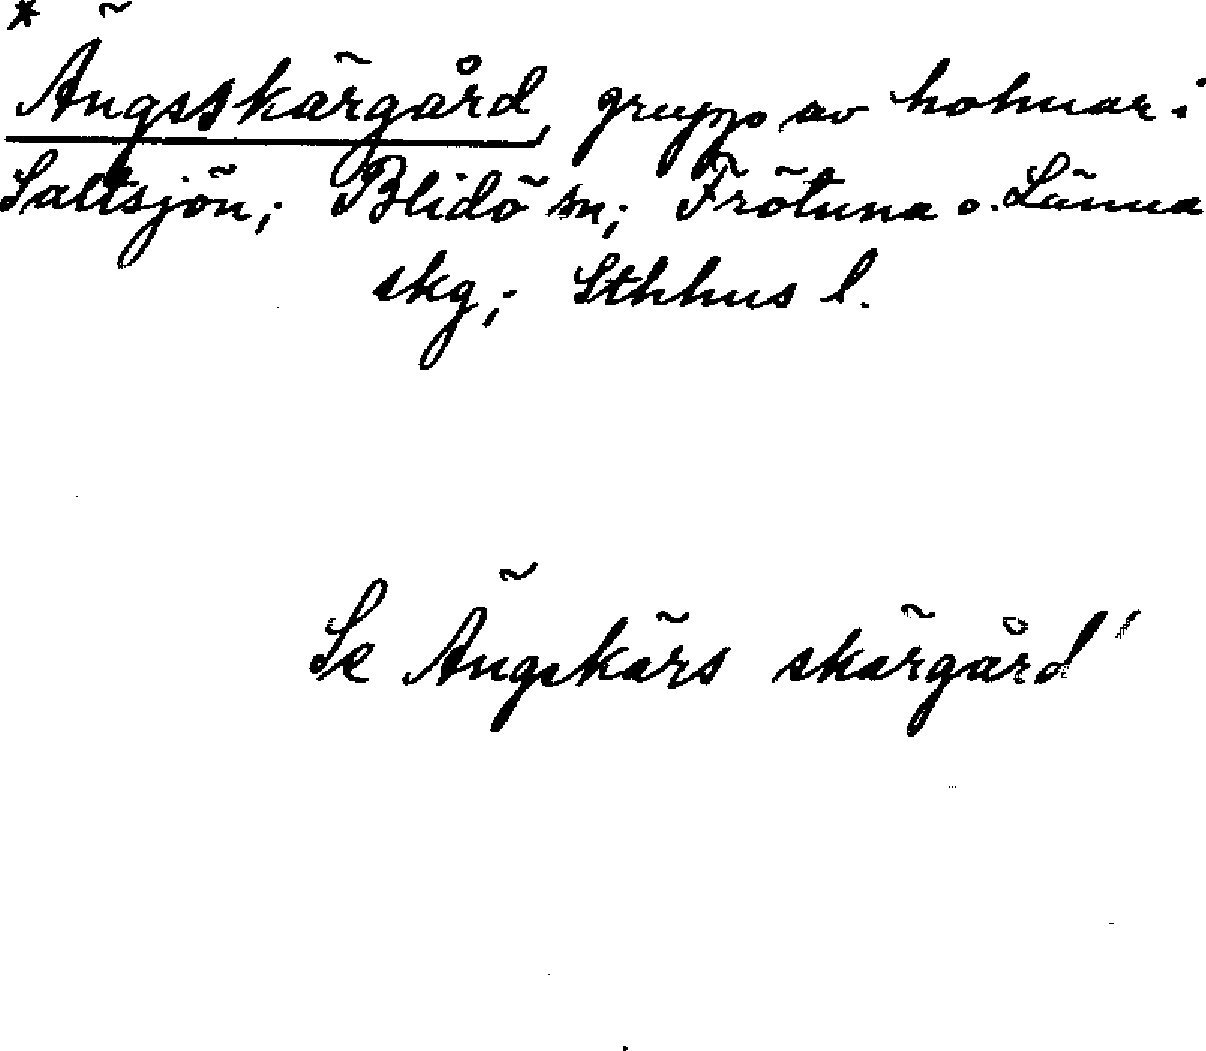 * Ängsskärgård, grupp av holmar i
Saltsjön; Blidö sn; Frötuna o. Länna
skg; Sthlms l.
Se Ängskärs skärgård!